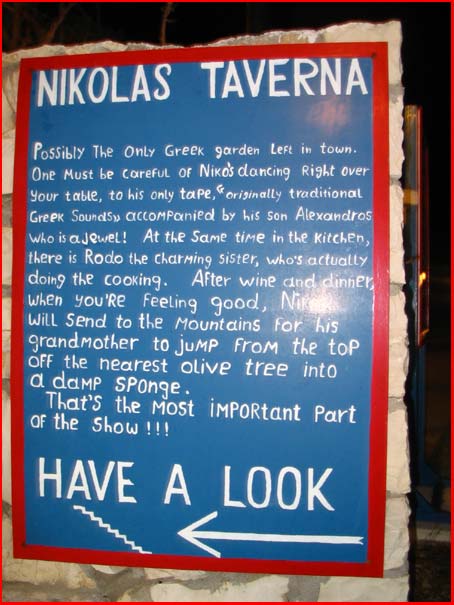 NIKOLAS TAVERNA
Possibly The Only Greek garden Left in town.
One Must be careful of Niko's dancing Right over
Your table, to his only tape, «originally traditional
Greek Sounds» accompanied by his son Alexandros
who is a jewel! At the Same time in the Kitchen,
there is Rodo the charming sister, who's actually
doing the cooking. After wine and dinner,
when you'RE Feeling good,
Will Send to the Mountains for his
grandmother to JUMP From the top
off the nearest olive tree into
a damp sponge.
That's the Most iMPORtant Part
of the Show !!!
HAVE A LOOK